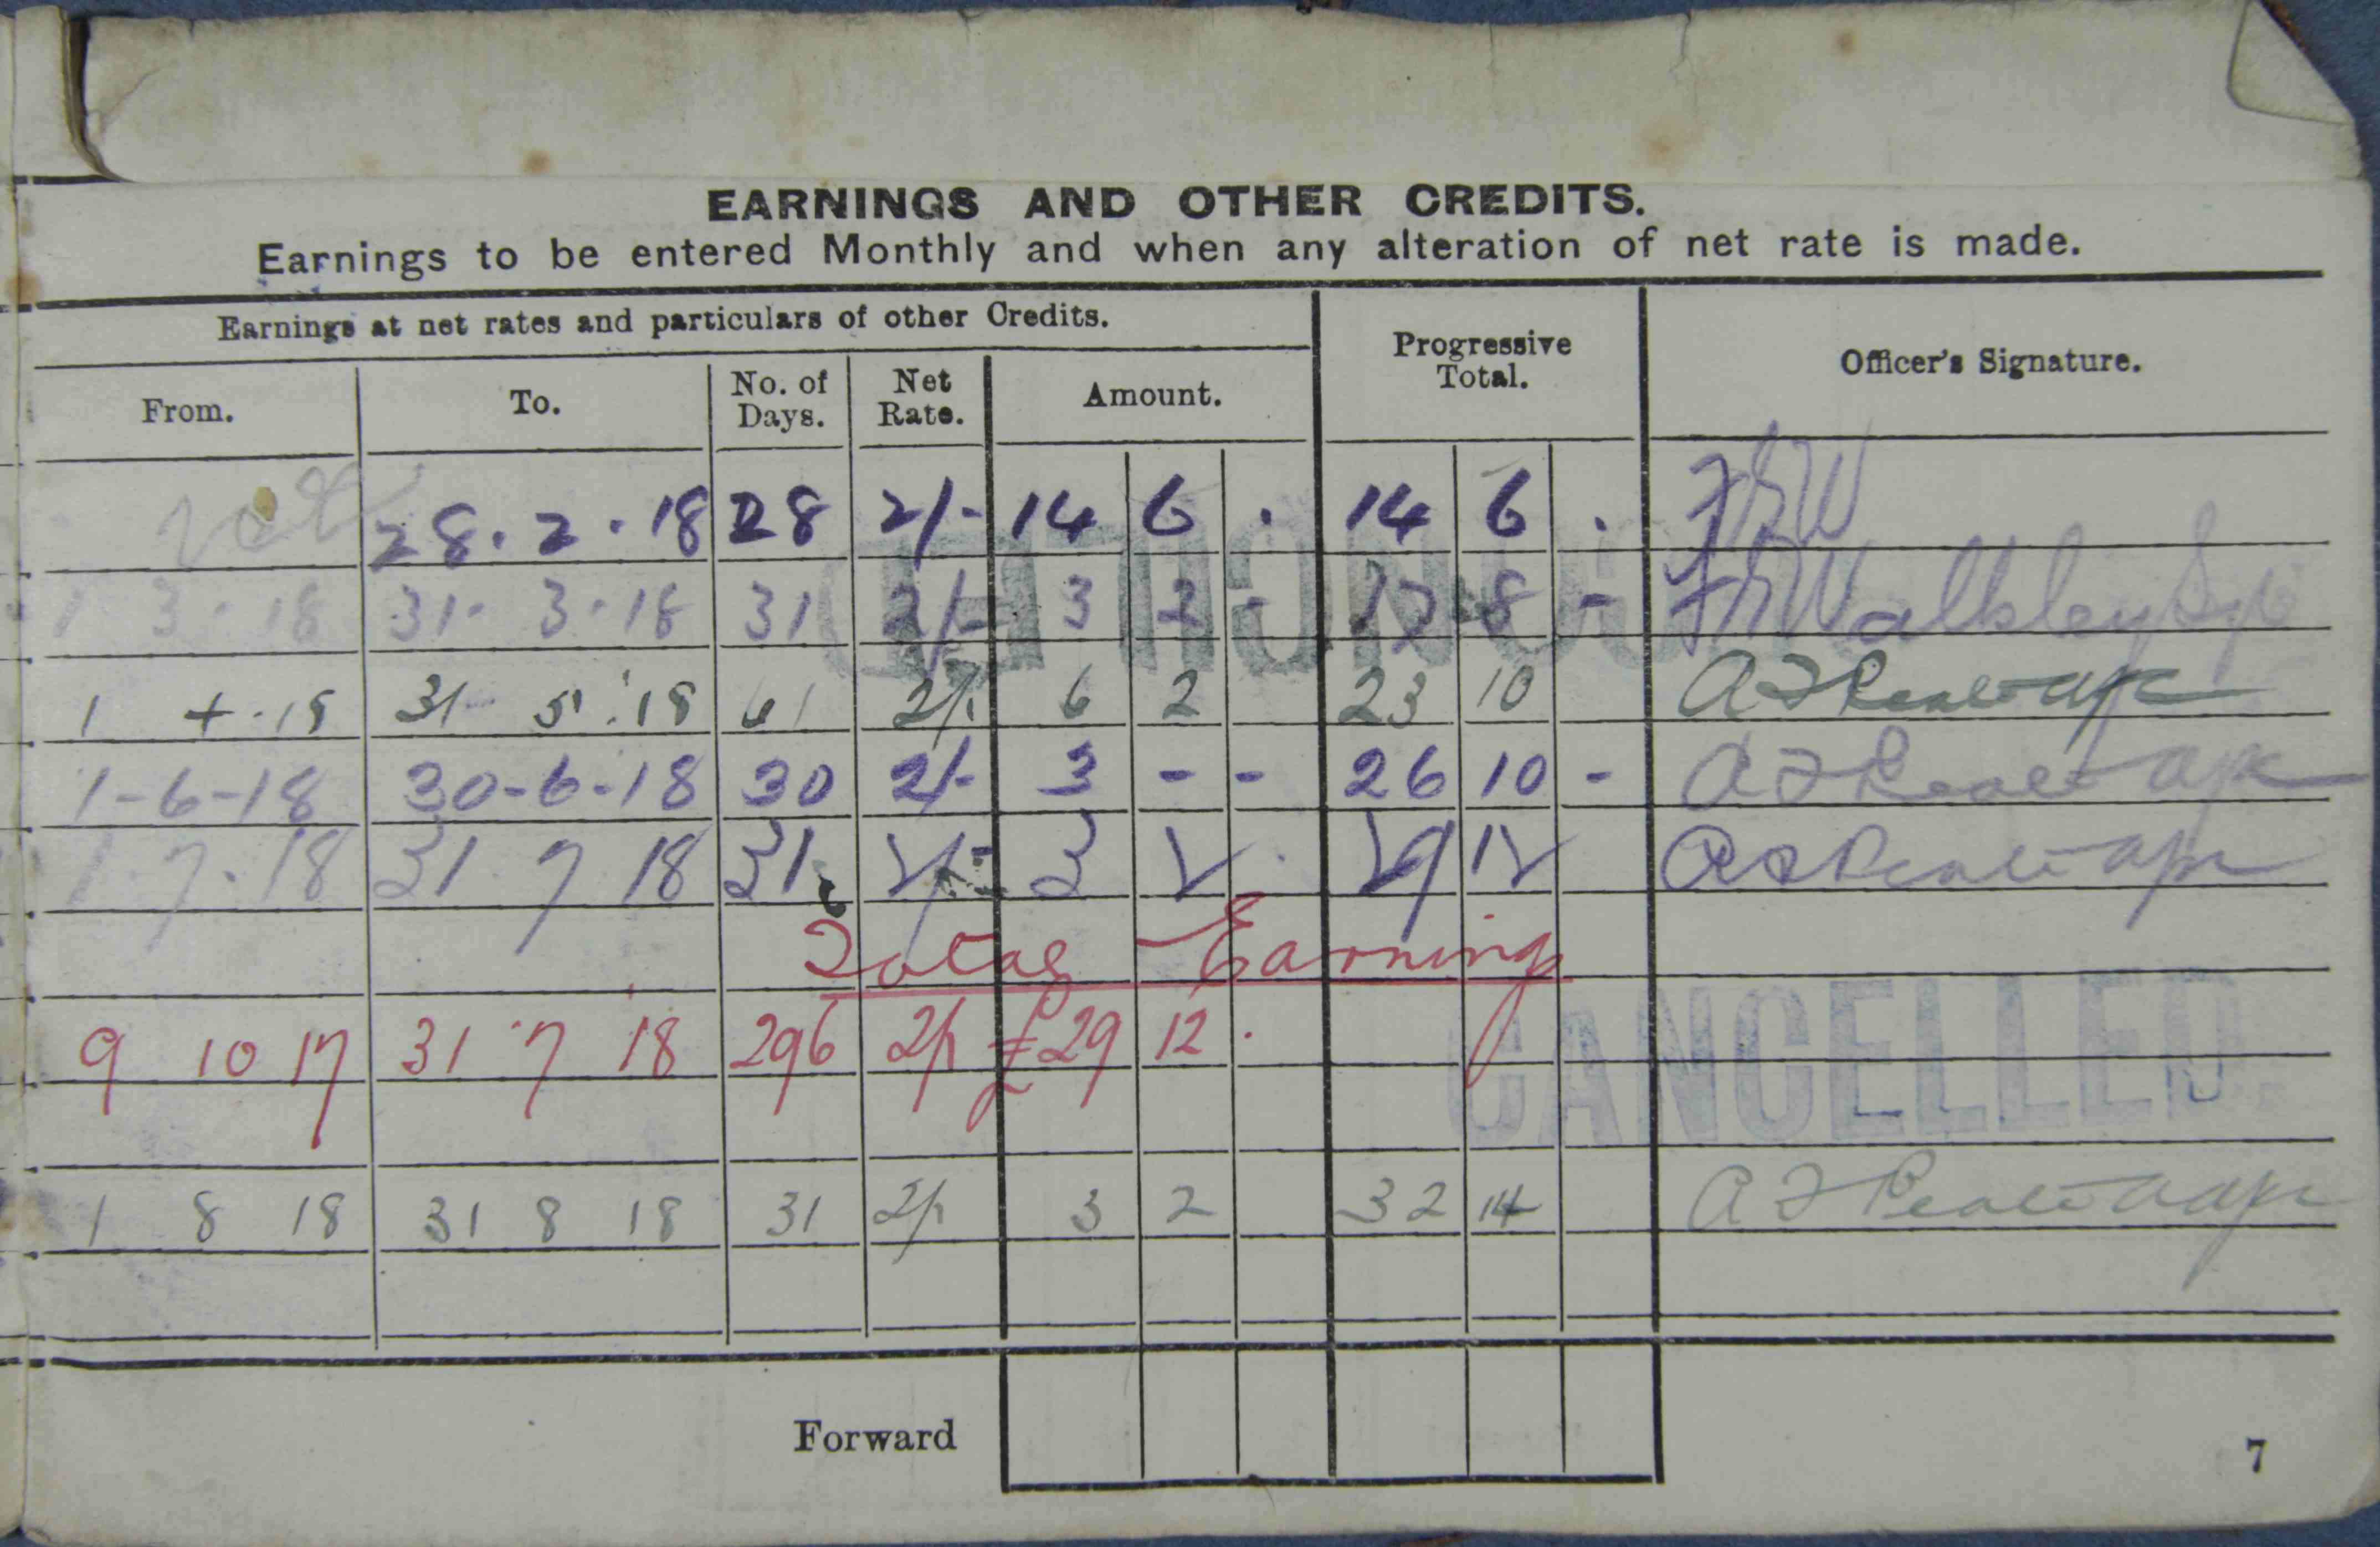 EARNINGS AND OTHER CREDITS.
Earnings to be entered Monthly and when any alteration of net rate is made.
Earnings at net rates and particulars of other Credits. Progressive Total. Officer's Signature.
From. To. No. of Days. Net Rate. Amount.
28 . 2 . 18 28 2/- 14 6 . 14 6 . FRW
1 3 . 18 31 . 3 . 18 31 2/- 3 2 - 17 8 - FRWalkley
1 4 . 18 31 5 . 18 61 2/- 6 2 23 10
1-6-18 30-6-18 30 2/- 3 - - 26 10 -
1 . 7 . 18 31 7 18 31 2/- 3 2 . 29 12
Total Earnings
9 10 17 31 7 18 296 2/- £29 12 .
CANCELLED
1 8 18 31 8 18 31 2/- 3 2 32 14
Forward
7